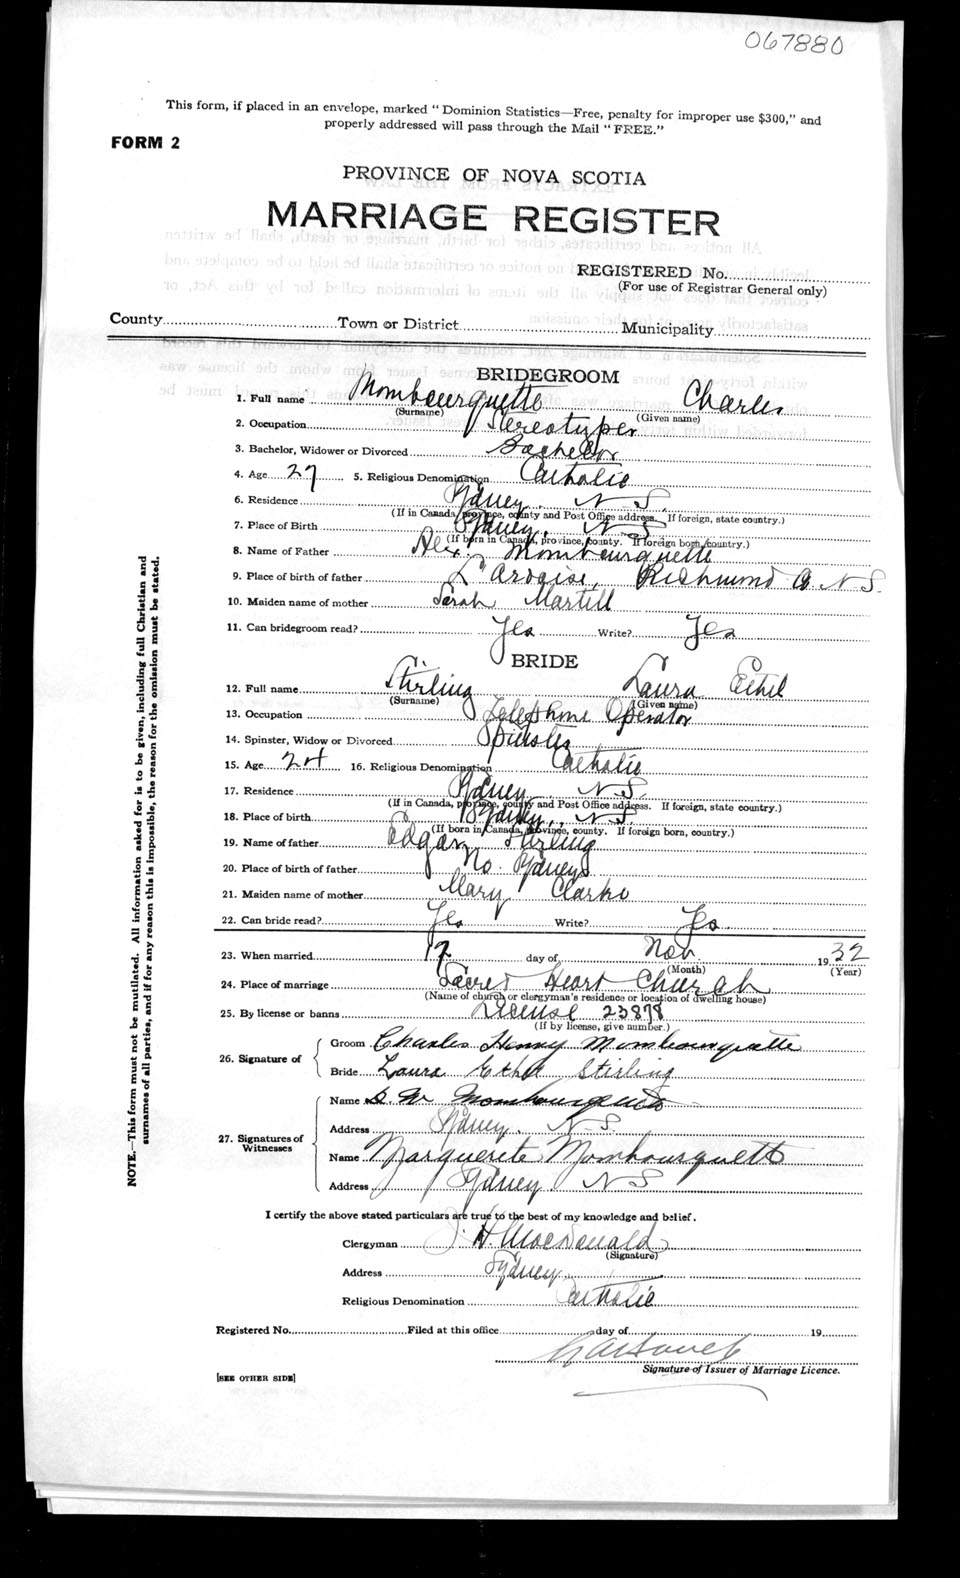 067880
This form, if placed in an envelope, marked "Dominion Statistics—Free, penalty for improper use $300," and
properly addressed will pass through the Mail "FREE."
FORM 2
PROVINCE OF NOVA SCOTIA
MARRIAGE REGISTER
REGISTERED No.
(For use of Registrar General only)
County Town or District Municipality
BRIDEGROOM
1. Full name Mombourquette Charles
(Surname) (Given name)
2. Occupation Stereotyper
3. Bachelor, Widower or Divorced Bachelor
4. Age 27 5. Religious Denomination Catholic
6. Residence Sydney, N S,
(If in Canada, province, county and Post Office address. If foreign, state country.)
7. Place of Birth Sydney, N S
(If born in Canada, province, county. If foreign born, country.)
8. Name of Father Alex Mombourquette
9. Place of birth of father L'Ardoise, Richmond Co N S.
10. Maiden name of mother Sarah Martell
11. Can bridegroom read? Yes Write? Yes
BRIDE
12. Full name Stirling Laura Ethel
(Surname) (Given name)
13. Occupation Telephone Operator
14. Spinster, Widow or Divorced Spinster
15. Age 24 16. Religious Denomination Catholic
17. Residence Sydney N S.
(If in Canada, province, county and Post Office address. If foreign, state country.)
18. Place of birth Sydney, N S.
(If born in Canada, province, county. If foreign born, country.)
19. Name of father Edgar Stirling
20. Place of birth of father No. Sydney
21. Maiden name of mother Mary Clarke
22. Can bride read? Yes Write? Yes
23. When married 17 day of Nov. 1932
(Month) (Year)
24. Place of marriage Sacred Heart Church
(Name of church or clergyman's residence or location of dwelling house)
25. By license or banns License 23878
(If by license, give number.)
26. Signature of
Groom Charles Henry Mombourquette
Bride Laura Ethel Stirling
27. Signatures of Witnesses
Name Mombourquette
Address Sydney, N S.
Name Marguerite Mombourquette
Address Sydney N S
I certify the above stated particulars are true to the best of my knowledge and belief.
Clergyman J. H. MacDonald
(Signature)
Address Sydney
Religious Denomination Catholic
Registered No. Filed at this office day of 19
Signature of Issuer of Marriage Licence.
[SEE OTHER SIDE]
NOTE.—This form must not be mutilated. All information asked for is to be given, including full Christian and
surnames of all parties, and if for any reason this is impossible, the reason for the omission must be stated.